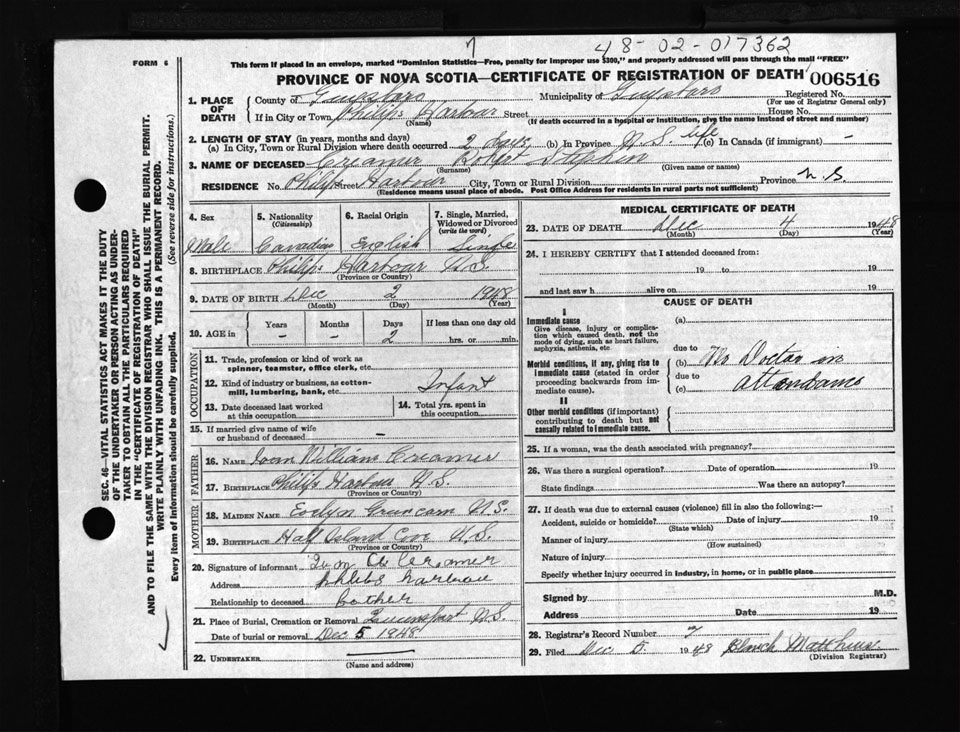 7
48-02-017362
FORM 6
This form if placed in an envelope, marked "Dominion Statistics—Free, penalty for improper use $300," and properly addressed will pass through the mail "FREE"
PROVINCE OF NOVA SCOTIA—CERTIFICATE OF REGISTRATION OF DEATH 006516
1. PLACE OF DEATH
County of Guysboro Municipality of Guysboro Registered No.
(For use of Registrar General only)
If in City or Town Philips Harbour Street House No.
(Name) (If death occurred in a hospital or institution, give the name instead of street and number)
2. LENGTH OF STAY (in years, months and days)
(a) In City, Town or Rural Division where death occurred 2 days (b) In Province N.S. life (c) In Canada (if immigrant) —
3. NAME OF DECEASED Creamer Robert Stephen
(Surname) (Given name or names)
RESIDENCE No. Philips Street Harbour City, Town or Rural Division Province N.S.
(Residence means usual place of abode. Post Office Address for residents in rural parts not sufficient)
4. Sex
Male
5. Nationality (Citizenship)
Canadian
6. Racial Origin
English
7. Single, Married, Widowed or Divorced (write the word)
Single
8. BIRTHPLACE Philips Harbour N.S.
(Province or Country)
9. DATE OF BIRTH Dec 2 1948
(Month) (Day) (Year)
10. AGE in
Years Months Days If less than one day old
– – 2 hrs. or min.
OCCUPATION
11. Trade, profession or kind of work as spinner, teamster, office clerk, etc.
12. Kind of industry or business, as cotton-mill, lumbering, bank, etc. Infant
13. Date deceased last worked at this occupation
14. Total yrs. spent in this occupation
15. If married give name of wife or husband of deceased –
FATHER
16. NAME William Creamer
17. BIRTHPLACE Philips Harbour N.S.
(Province or Country)
MOTHER
18. MAIDEN NAME Evelyn N.S.
19. BIRTHPLACE Half Island Cove N.S.
(Province or Country)
20. Signature of informant Creamer
Address
Relationship to deceased father
21. Place of Burial, Cremation or Removal Queensport N.S.
Date of burial or removal Dec 5 1948
22. UNDERTAKER
(Name and address)
MEDICAL CERTIFICATE OF DEATH
23. DATE OF DEATH Dec 4 1948
(Month) (Day) (Year)
24. I HEREBY CERTIFY that I attended deceased from:
19 to 19
and last saw h alive on 19
CAUSE OF DEATH
I
Immediate cause
Give disease, injury or complication which caused death, not the mode of dying, such as heart failure, asphyxia, asthenia, etc.
(a)
due to
Morbid conditions, if any, giving rise to immediate cause (stated in order proceeding backwards from immediate cause).
(b) No Doctor in
due to
(c) attendance
II
Other morbid conditions (if important) contributing to death but not causally related to immediate cause.
25. If a woman, was the death associated with pregnancy?
26. Was there a surgical operation? Date of operation 19
State findings Was there an autopsy?
27. If death was due to external causes (violence) fill in also the following:—
Accident, suicide or homicide? Date of injury 19
(State which)
Manner of injury
(How sustained)
Nature of injury
Specify whether injury occurred in industry, in home, or in public place
Signed by M.D.
Address Date 19
28. Registrar's Record Number 7
29. Filed Dec 5 1948 Blanch Matthews
(Division Registrar)
SEC. 46—VITAL STATISTICS ACT MAKES IT THE DUTY
OF THE UNDERTAKER OR PERSON ACTING AS UNDER-
TAKER TO OBTAIN ALL THE PARTICULARS REQUIRED
IN THE "CERTIFICATE OF REGISTRATION OF DEATH"
AND TO FILE THE SAME WITH THE DIVISION REGISTRAR WHO SHALL ISSUE THE BURIAL PERMIT.
WRITE PLAINLY WITH UNFADING INK. THIS IS A PERMANENT RECORD.
Every item of information should be carefully supplied. (See reverse side for instructions.)